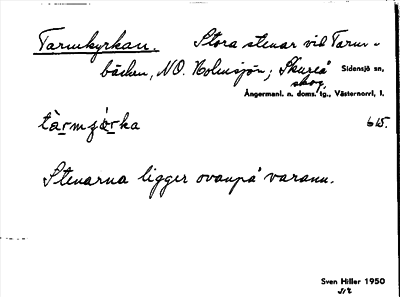 Tarmkyrkan. Stora stenar vid Tarm-
bäcken, NO. Holmsjön; Skureå Sidensjö sn,
skog,
Ångermanl. n. doms. tg., Västernorrl. l.
615.
Stenarna ligger ovanpå varann.
Sven Hiller 1950